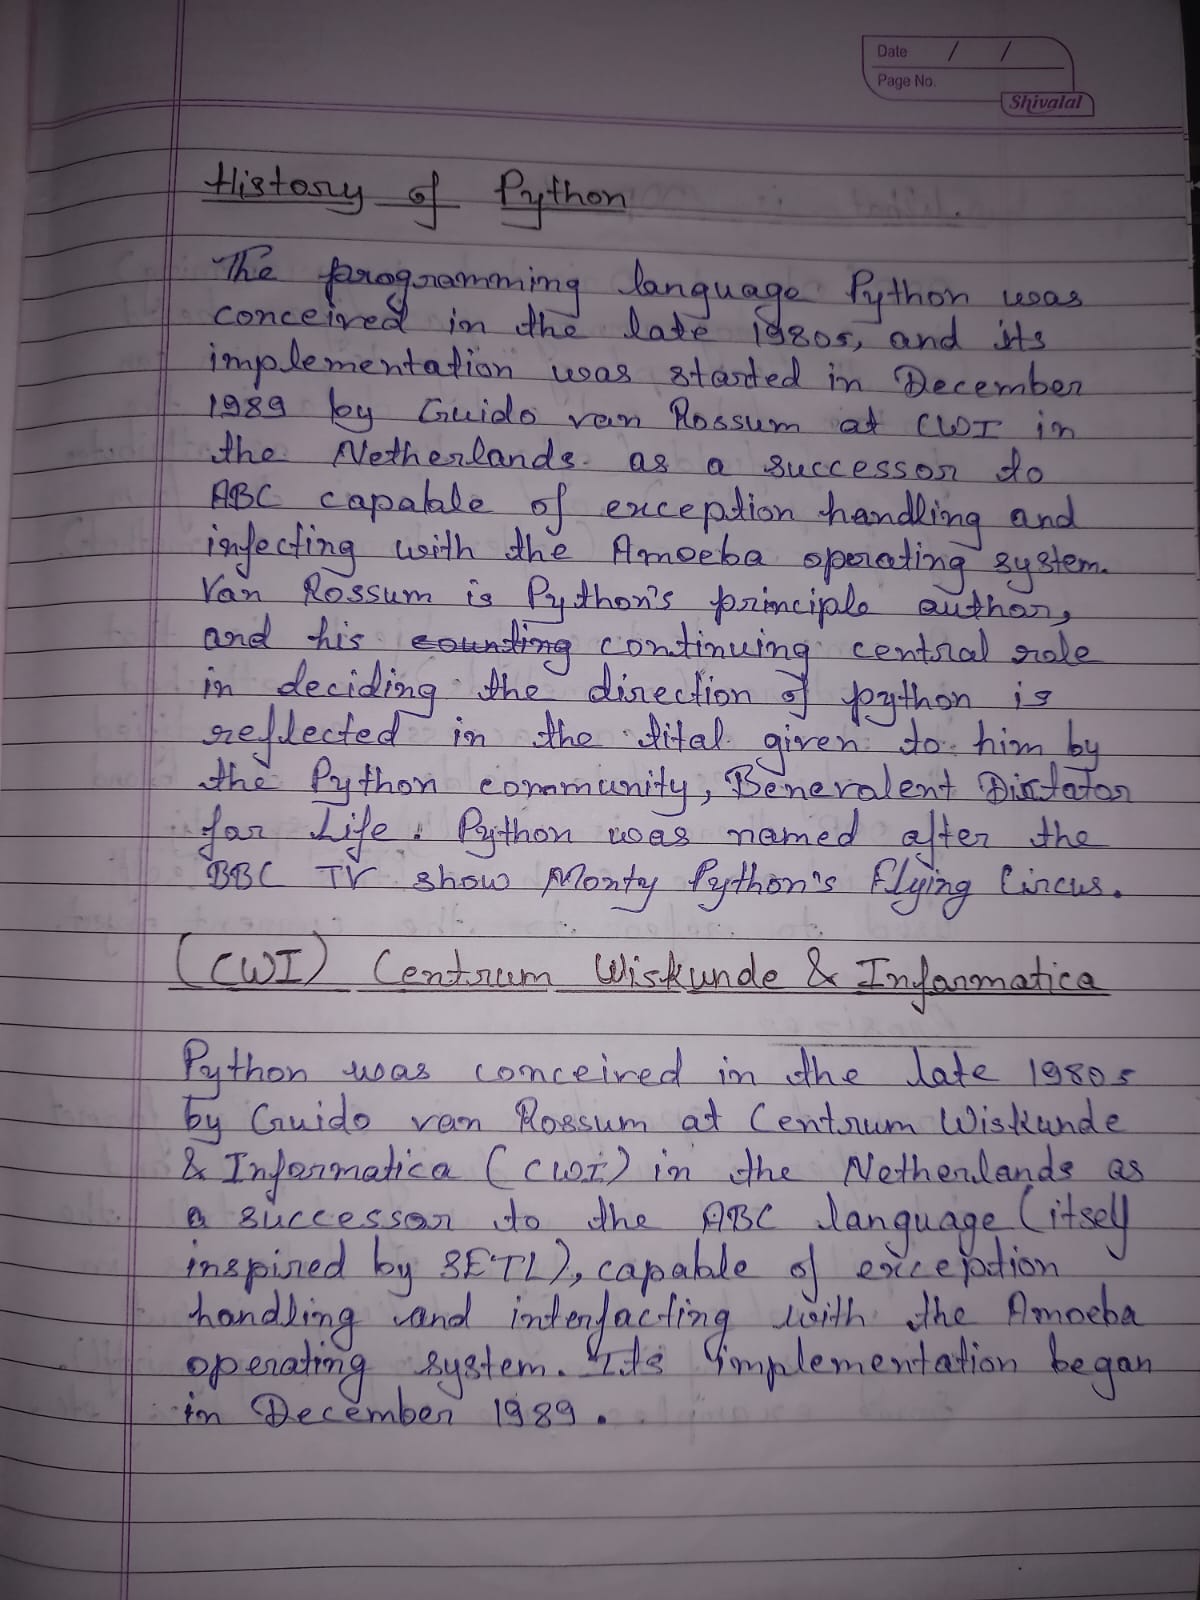 Date / /
Page No.
Shivalal
History of Python
The programming language Python was
conceived in the late 1980s, and its
implementation was started in December
1989 by Guido van Rossum at CWI in
the Netherlands as a successor to
ABC capable of exception handling and
infecting with the Amoeba operating system.
Van Rossum is Python's principle author,
and his counting continuing central role
in deciding the direction of python is
reflected in the tital given to him by
the Python community, Benevalent Dictator
for Life. Python was named after the
BBC TV show Monty Python's Flying Circus.
(CWI) Centrum Wiskunde & Informatica
Python was conceived in the late 1980s
by Guido van Rossum at Centrum Wiskunde
& Informatica (CWI) in the Netherlands as
a successor to the ABC language (itself
inspired by SETL), capable of exception
handling and interfacting with the Amoeba
operating system. Its implementation began
in December 1989.